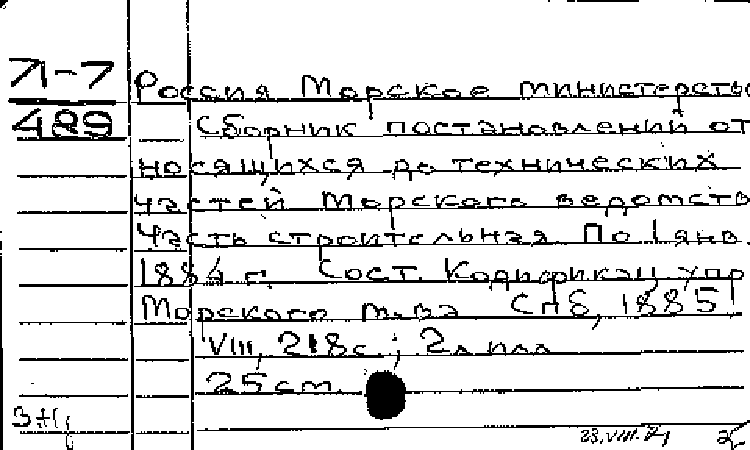 Л-7
489
Россия Морское министерство
Сборник постановлений от
носящихся до технических
частей Морского ведомств
Часть строительная По 1 янв.
1884 г. Сост. Кодификац упр
Морского м-ва СПб, 1885!
VIII, 218с.; 2л илл
25 см.
23.VIII.71